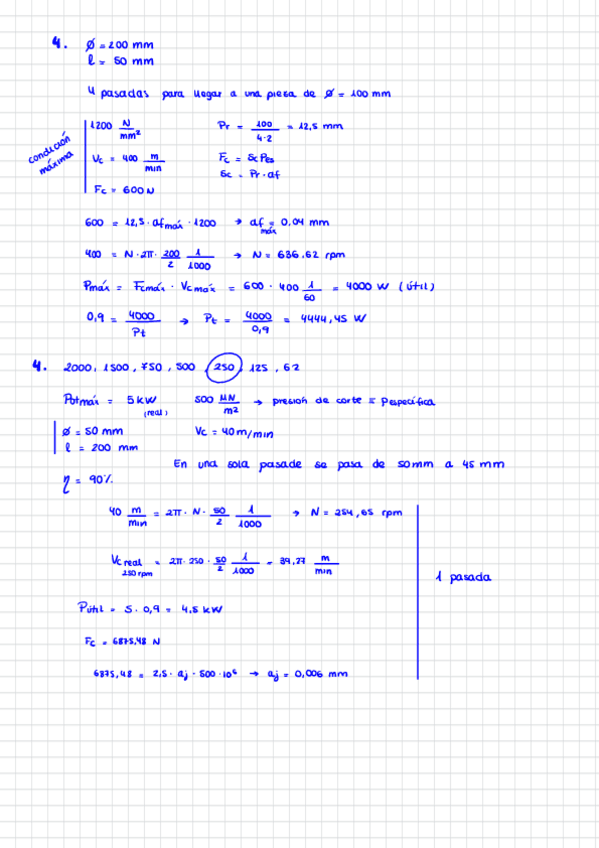 4. Ø = 200 mm
l = 50 mm
4 pasadas para llegar a una pieza de Ø = 100 mm
condición máxima
1200 N/mm² Pr = 100/4·2 = 12,5 mm
Vc = 400 m/min Fc = Sc Pes
Sc = Pr · af
Fc = 600 N
600 = 12,5 · af máx · 1200 → af máx = 0,04 mm
400 = N · 2π · 200/2 1/1000 → N = 636,62 rpm
Pmáx = Fcmáx · Vc máx = 600 · 400 1/60 = 4000 W (útil)
0,9 = 4000/Pt → Pt = 4000/0,9 = 4444,45 W
4. 2000, 1500, 750, 500, 250, 125, 62
Potmáx = 5 kW (real) 500 MN/m² → presión de corte = Pespecífica
Ø = 50 mm Vc = 40 m/min
l = 200 mm
En una sola pasade se pasa de 50mm a 45 mm
η = 90%
40 m/min = 2π · N · 50/2 1/1000 → N = 254,65 rpm
Vc real 250 rpm = 2π · 250 · 50/2 1/1000 = 39,27 m/min
1 pasada
Pútil = 5 · 0,9 = 4,5 kW
Fc = 6875,48 N
6875,48 = 2,5 · aj · 500 · 10⁶ → aj = 0,006 mm